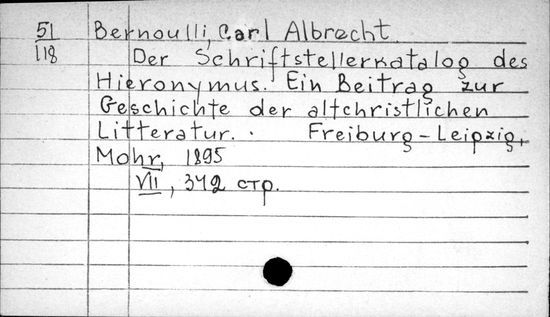 51 Bernoulli, Carl Albrecht
118 Der Schriftstellerkatalog des
Hieronymus. Ein Beitrag zur
Geschichte der altchristlichen
Litteratur. Freiburg-Leipzig,
Mohr, 1895
VII, 342 стр.